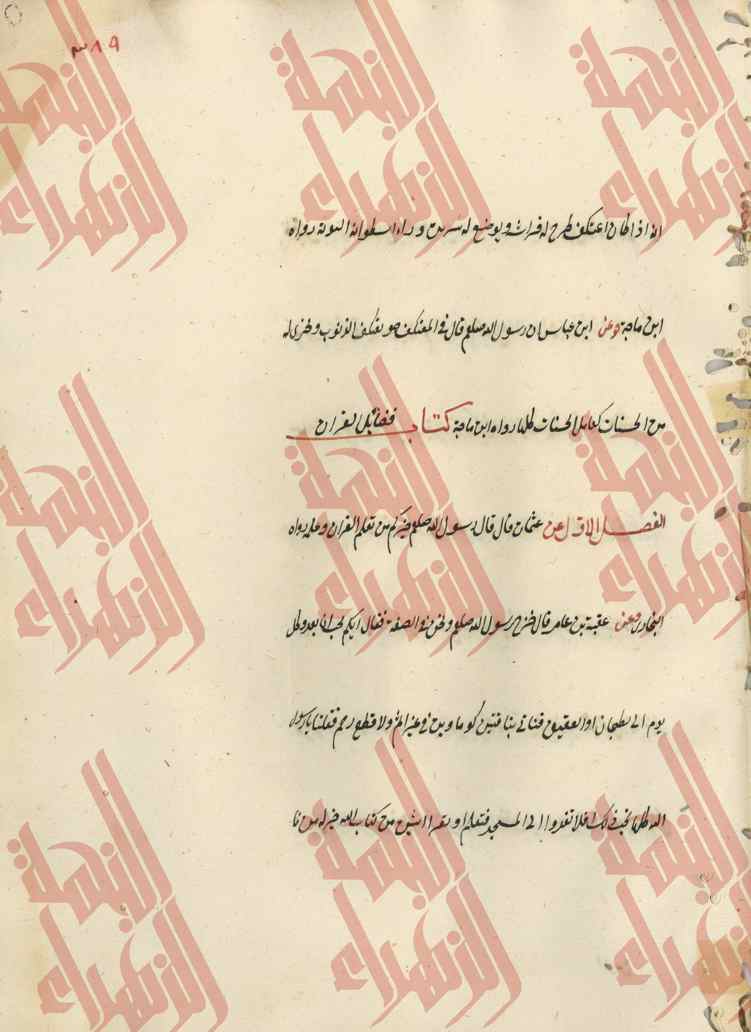 ٣٨٩
انه اذا كان اعتكف طرح له فراشه و يوضع له سريره وراء اسطوانة التوبة رواه
ابن ماجة وعن ابن عباس ان رسول الله صلعم قال في المعتكف هو يعتكف الذنوب و يجزى له
من الحسنات كعامل الحسنات كلها رواه ابن ماجة كتاب فضائل القران
الفصل الاول عن عثمان قال قال رسول الله صلعم خيركم من تعلم القران وعلمه رواه
البخارى وعن عقبة بن عامر قال خرج رسول الله صلعم ونحن في الصفة فقال ايكم يحب ان يغدو كل
يوم الى بطحان او العقيق فياتى بناقتين كوماوين في غير اثم ولا قطع رحم فقلنا يا رسول
الله كلنا يحب ذلك قال افلا تغدوا الى المسجد فتعلم او تقرا ايتين من كتاب الله خير له من نا
النهضة
الازهراء